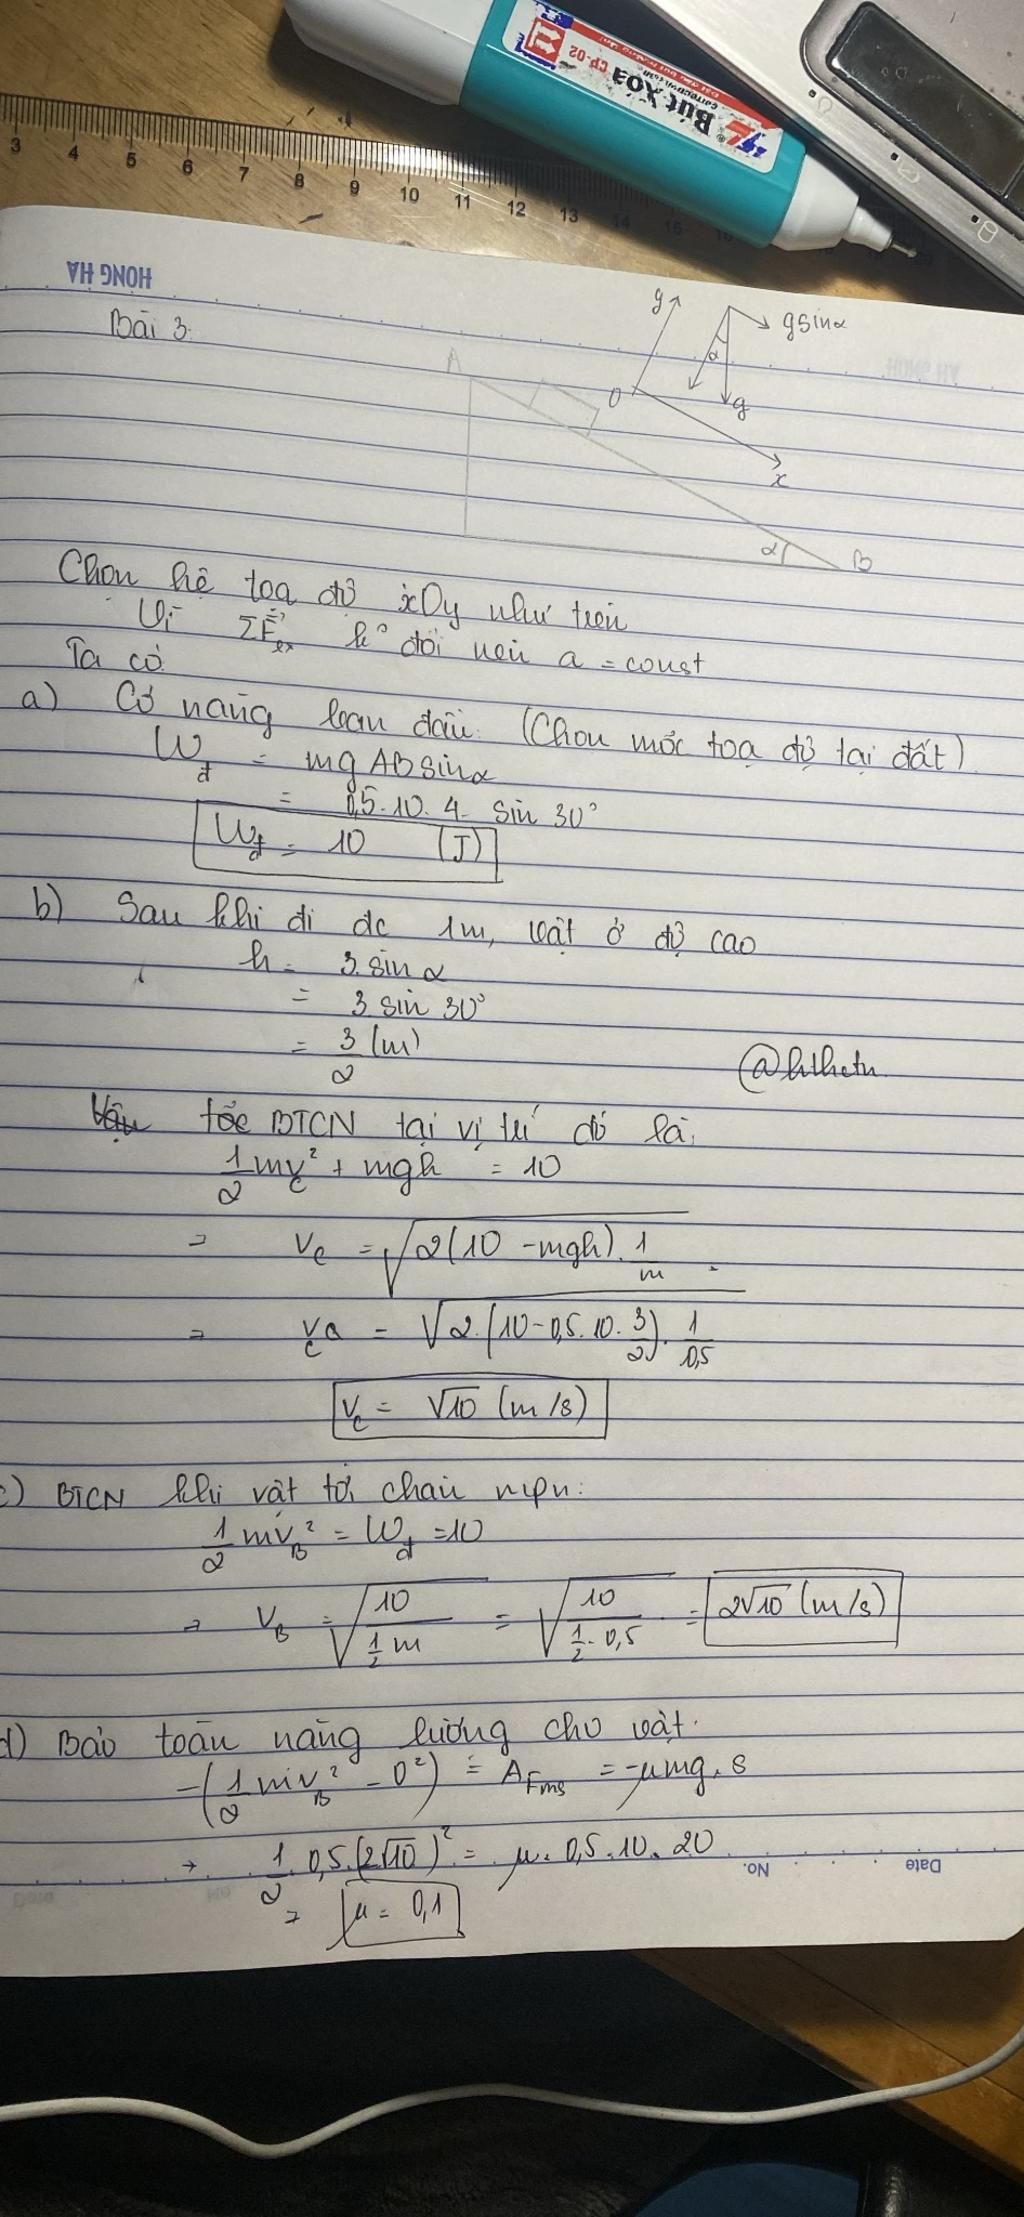 3 4 5 6 7 8 9 10 11 12 13 14 15
CP-02
Bút Xoá
HONG HA
Bài 3:
y
gsinα
A
α
O
g
x
α
B
Chọn hệ toạ độ xOy như trên
Vì ΣF ex k° đổi nên a = const
Ta có
a) Cơ năng ban đầu: (Chọn mốc toạ độ tại đất)
Wđ = mgABsinα
= 0,5.10.4. sin 30°
Wđ = 10 (J)
b) Sau khi đi đc 1m, vật ở độ cao
h = 3.sin α
= 3 sin 30°
= 3/2 (m)
@hthctn
BTCN tại vị trí đó là:
1/2 mv_c² + mgh = 10
⇒ v_c = √(2(10 - mgh).1/m)
⇒ v_c = √(2.(10-0,5.10.3/2).1/0,5)
v_c = √10 (m/s)
c) BTCN khi vật tới chân mpn:
1/2 mv_B² = Wđ = 10
⇒ v_B = √(10/(1/2 m)) = √(10/(1/2.0,5)) = 2√10 (m/s)
d) Bảo toàn năng lượng cho vật.
-(1/2 mv_B² - 0²) = A_Fms = -μmg.s
→ 1/2.0,5.(2√10)² = μ.0,5.10.20
⇒ μ = 0,1
No.
Date